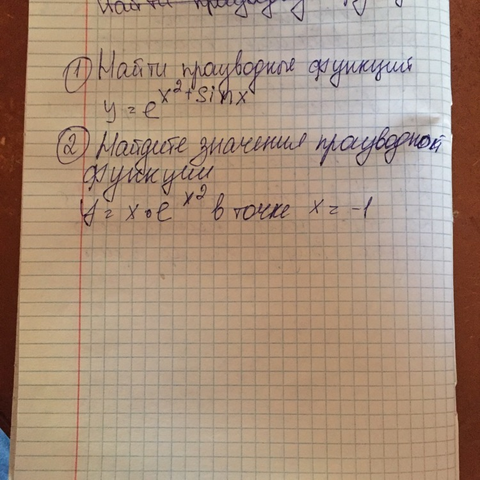 Найти
① Найти производные функций
y = e^{x²+sinx}
② Найдите значения производной
функции
y = x•e^{x²} в точке x = -1